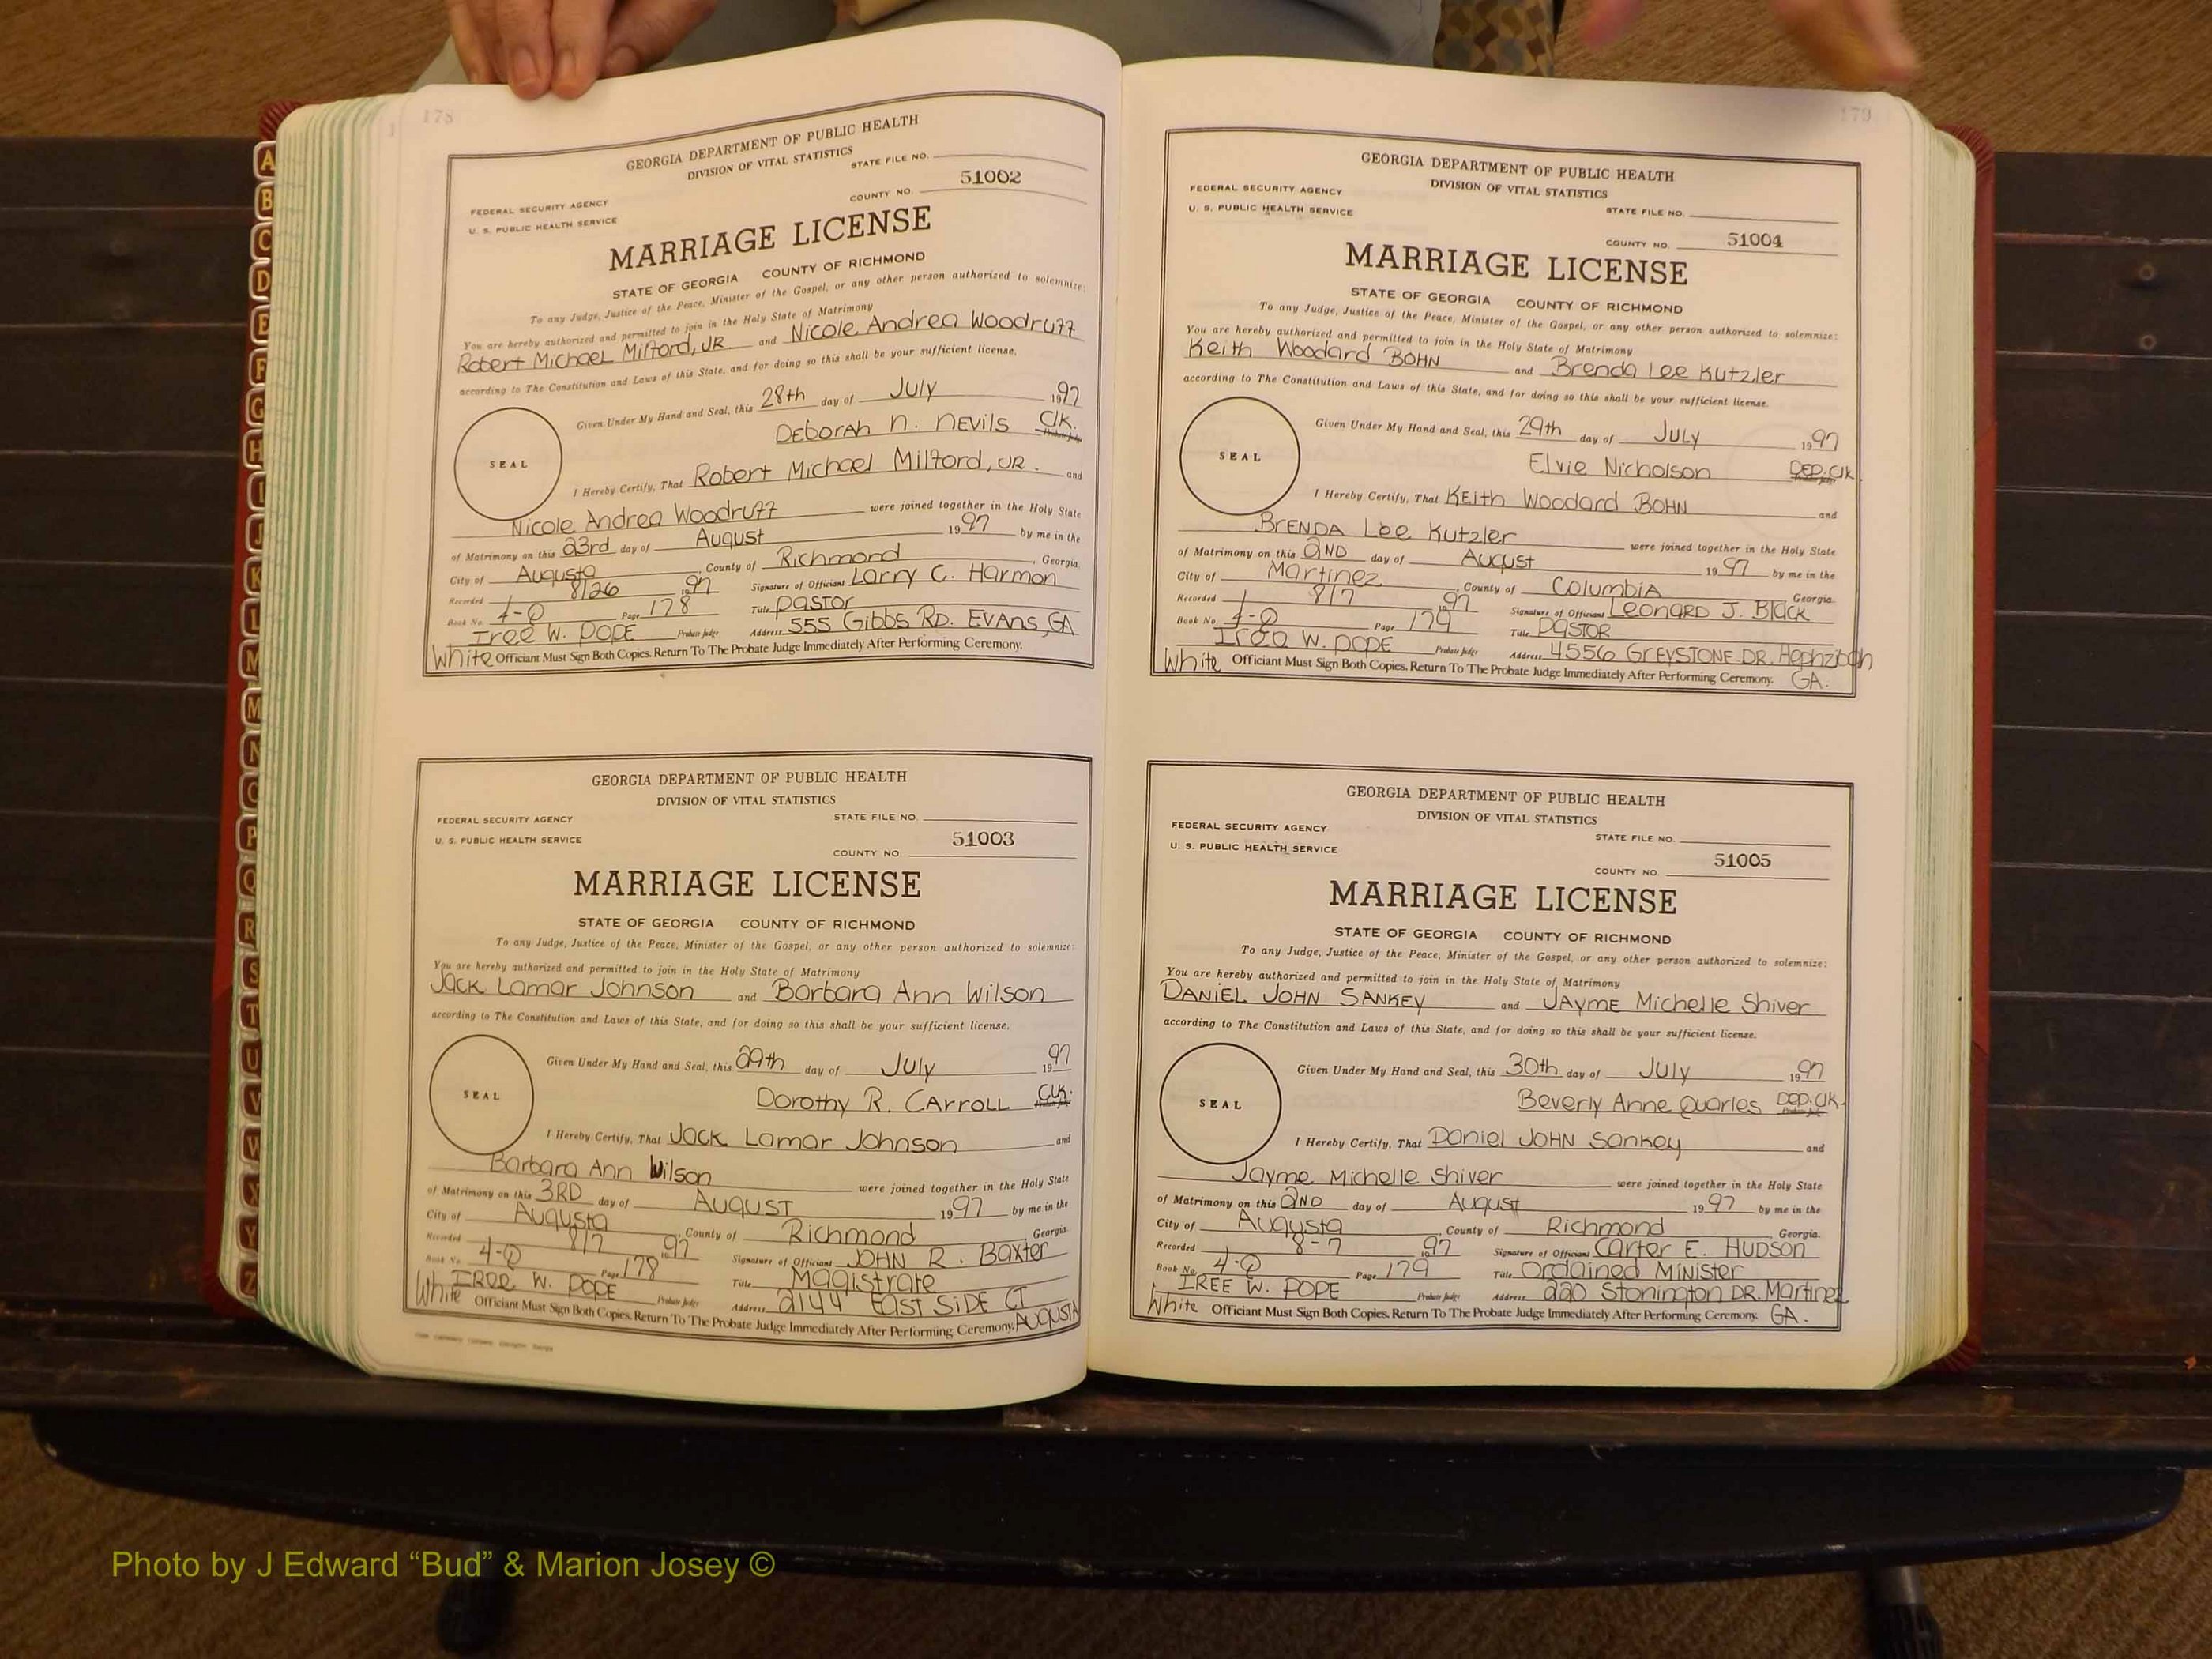 178
GEORGIA DEPARTMENT OF PUBLIC HEALTH
DIVISION OF VITAL STATISTICS
STATE FILE NO.
COUNTY NO. 51002
FEDERAL SECURITY AGENCY
U. S. PUBLIC HEALTH SERVICE
MARRIAGE LICENSE
STATE OF GEORGIA COUNTY OF RICHMOND
To any Judge, Justice of the Peace, Minister of the Gospel, or any other person authorized to solemnize:
You are hereby authorized and permitted to join in the Holy State of Matrimony
Robert Michael Milford, JR. and Nicole Andrea Woodruff
according to The Constitution and Laws of this State, and for doing so this shall be your sufficient license.
Given Under My Hand and Seal, this 28th day of July 1997
Deborah N. Nevils Clk.
SEAL
I Hereby Certify, That Robert Michael Milford, JR. and
Nicole Andrea Woodruff were joined together in the Holy State
of Matrimony on this 23rd day of August 1997 by me in the
City of Augusta, County of Richmond, Georgia.
Recorded 8/26 1997 Signature of Officiant Larry C. Harmon
Book No. 4-Q Page 178 Title Pastor
Iree W. Pope Probate Judge Address 555 Gibbs Rd. Evans, GA
White Officiant Must Sign Both Copies. Return To The Probate Judge Immediately After Performing Ceremony.
GEORGIA DEPARTMENT OF PUBLIC HEALTH
DIVISION OF VITAL STATISTICS
FEDERAL SECURITY AGENCY
STATE FILE NO.
U. S. PUBLIC HEALTH SERVICE
COUNTY NO. 51003
MARRIAGE LICENSE
STATE OF GEORGIA COUNTY OF RICHMOND
To any Judge, Justice of the Peace, Minister of the Gospel, or any other person authorized to solemnize:
You are hereby authorized and permitted to join in the Holy State of Matrimony
Jack Lamar Johnson and Barbara Ann Wilson
according to The Constitution and Laws of this State, and for doing so this shall be your sufficient license.
Given Under My Hand and Seal, this 29th day of July 1997
Dorothy R. Carroll Clk.
SEAL
I Hereby Certify, That Jack Lamar Johnson and
Barbara Ann Wilson were joined together in the Holy State
of Matrimony on this 3RD day of AUGUST 1997 by me in the
City of Augusta, County of Richmond Georgia.
Recorded 8/7 1997 Signature of Officiant JOHN R. Baxter
Book No. 4-Q Page 178 Title Magistrate
IRee W. POPE Probate Judge Address 2144 EAST SIDE CT
White Officiant Must Sign Both Copies. Return To The Probate Judge Immediately After Performing Ceremony. AUGUSTA
179
GEORGIA DEPARTMENT OF PUBLIC HEALTH
DIVISION OF VITAL STATISTICS
FEDERAL SECURITY AGENCY
U. S. PUBLIC HEALTH SERVICE
STATE FILE NO.
COUNTY NO. 51004
MARRIAGE LICENSE
STATE OF GEORGIA COUNTY OF RICHMOND
To any Judge, Justice of the Peace, Minister of the Gospel, or any other person authorized to solemnize:
You are hereby authorized and permitted to join in the Holy State of Matrimony
Keith Woodard BOHN and Brenda Lee Kutzler
according to The Constitution and Laws of this State, and for doing so this shall be your sufficient license.
Given Under My Hand and Seal, this 29th day of July 1997
Elvie Nicholson DEP. Clk.
SEAL
I Hereby Certify, That KEith Woodard BOHN and
BRENDA Lee Kutzler were joined together in the Holy State
of Matrimony on this 2ND day of August 1997 by me in the
City of Martinez, County of Columbia Georgia.
Recorded 8/7 1997 Signature of Officiant Leonard J. Black
Book No. 4-Q Page 179 Title PASTOR
Iree W. POPE Probate Judge Address 4556 GREYSTONE DR. Hephzibah
White Officiant Must Sign Both Copies. Return To The Probate Judge Immediately After Performing Ceremony. GA.
GEORGIA DEPARTMENT OF PUBLIC HEALTH
DIVISION OF VITAL STATISTICS
FEDERAL SECURITY AGENCY
STATE FILE NO.
U. S. PUBLIC HEALTH SERVICE
COUNTY NO. 51005
MARRIAGE LICENSE
STATE OF GEORGIA COUNTY OF RICHMOND
To any Judge, Justice of the Peace, Minister of the Gospel, or any other person authorized to solemnize:
You are hereby authorized and permitted to join in the Holy State of Matrimony
DANIEL JOHN SANKEY and JAYME Michelle Shiver
according to The Constitution and Laws of this State, and for doing so this shall be your sufficient license.
Given Under My Hand and Seal, this 30th day of July 1997
Beverly Anne Quarles DEP. Clk.
SEAL
I Hereby Certify, That Daniel JOHN Sankey and
Jayme Michelle Shiver were joined together in the Holy State
of Matrimony on this 2ND day of August 1997 by me in the
City of Augusta, County of Richmond Georgia.
Recorded 8-7 1997 Signature of Officiant Carter E. HUDSON
Book No. 4-Q Page 179 Title Ordained MINISTER
IREE W. POPE Probate Judge Address 220 Stonington DR. Martinez
White Officiant Must Sign Both Copies. Return To The Probate Judge Immediately After Performing Ceremony. GA.
A
B
C
D
E
F
G
H
I
J
K
L
M
M
N
O
P
Q
R
S
T
U
V
W
X
Y
Z
Photo by J Edward “Bud” & Marion Josey ©